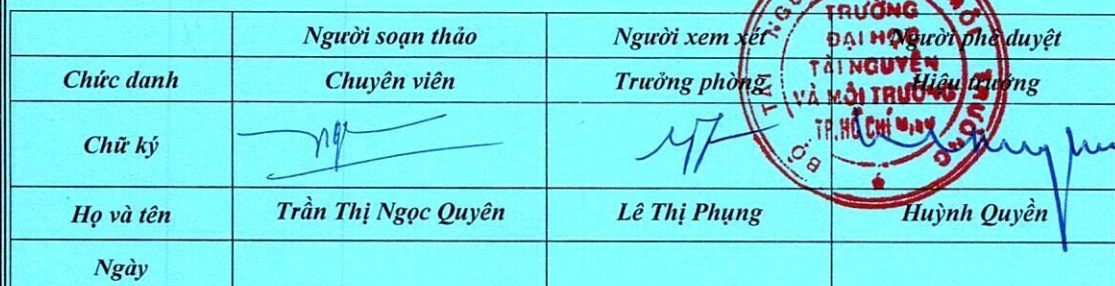 Người soạn thảo Người xem xét Người phê duyệt
Chức danh Chuyên viên Trưởng phòng Hiệu trưởng
Chữ ký
Họ và tên Trần Thị Ngọc Quyên Lê Thị Phụng Huỳnh Quyền
Ngày
TRƯỜNG
ĐẠI HỌC
TÀI NGUYÊN
VÀ MÔI TRƯỜNG
TP.HỒ CHÍ MINH